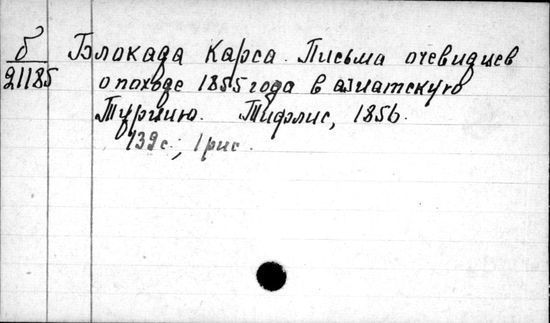 б Блокада Карса. Письма очевидцев
21185 о походе 1855 года в азиатскую
Турцию. Тифлис, 1856.
139 с., 1 рис.